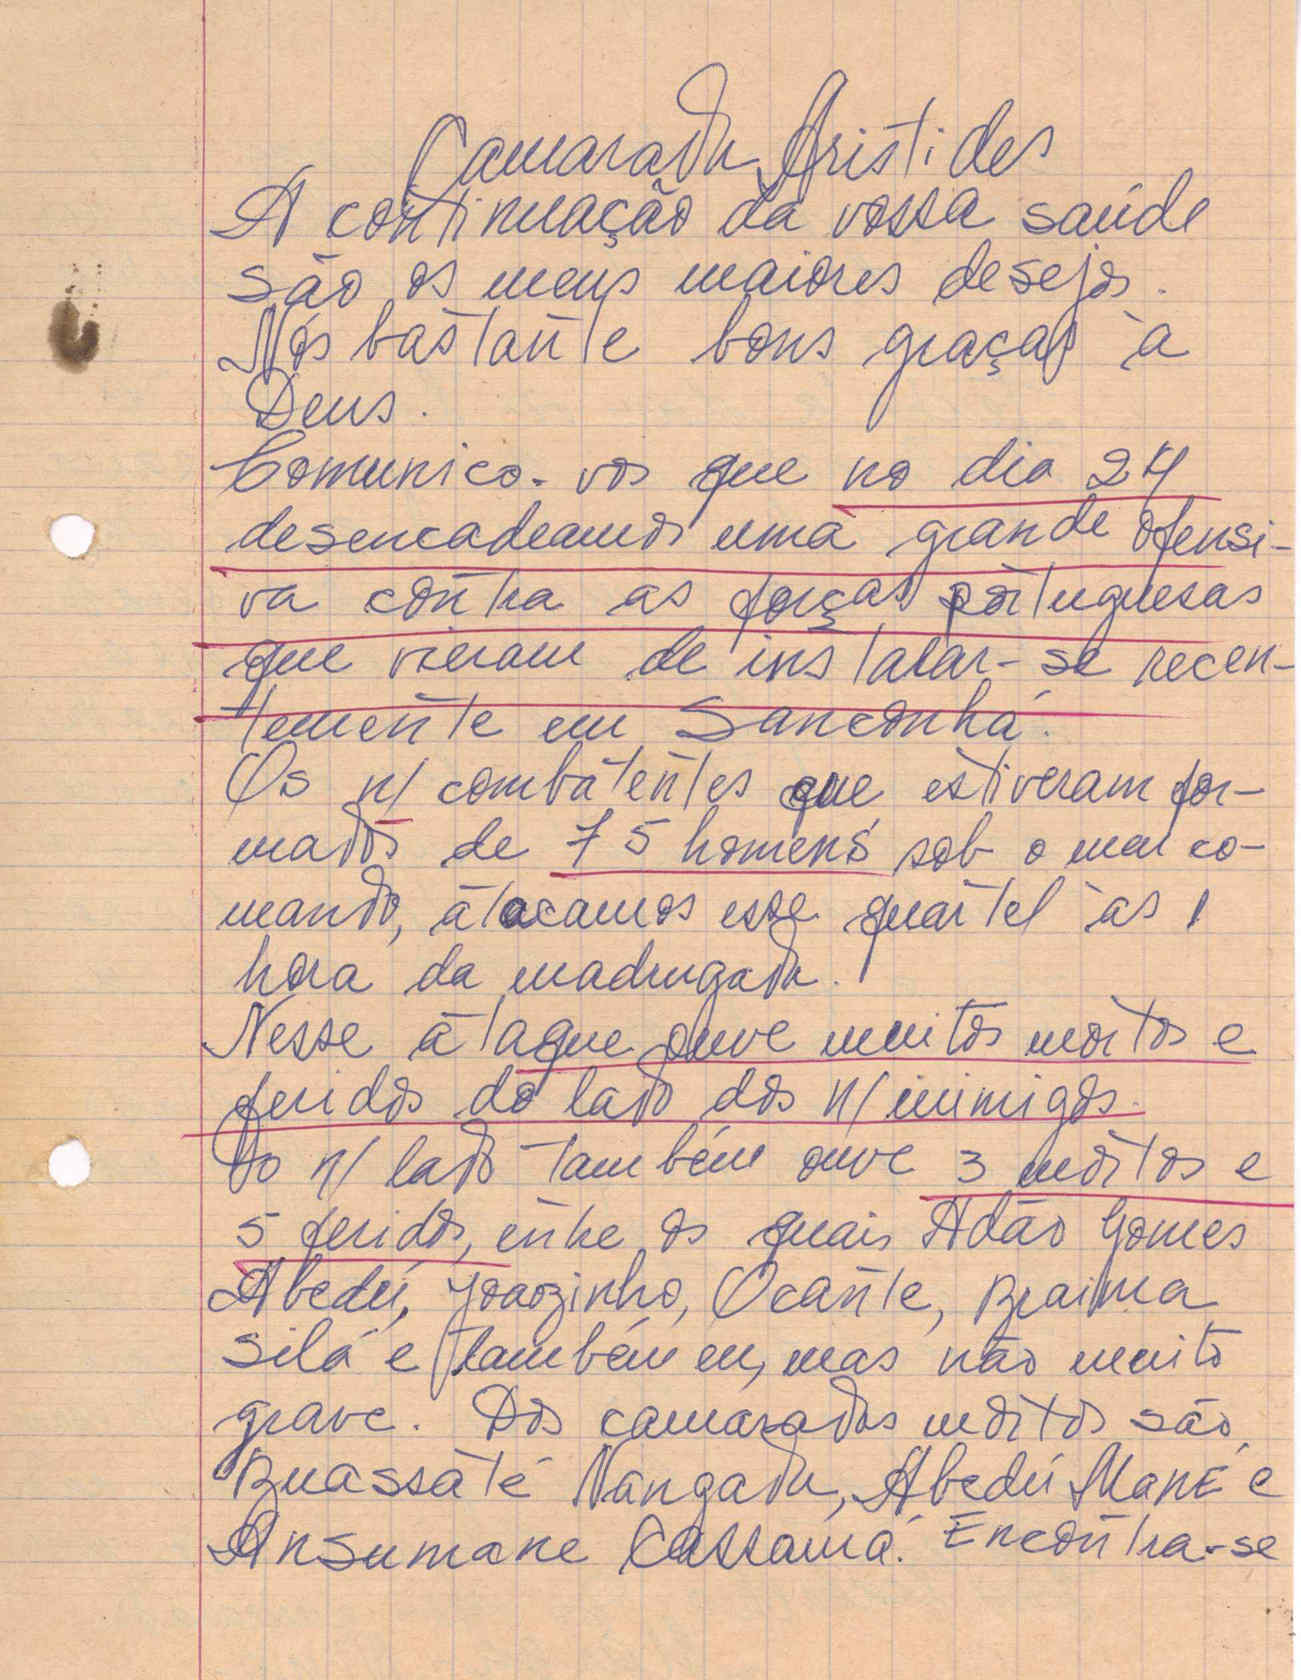 Camarada Aristides
A continuação da vossa saúde
são os meus maiores desejos.
Nós bastante bons graças à
Deus.
Comunico-vos que no dia 24
desencadeamos uma grande ofensi-
va contra as forças portuguesas
que vieram de instalar-se recen-
temente em Sanconhá.
Os n/ combatentes que estiveram for-
mados de 75 homens sob o meu co-
mando, atacamos esse quartel às 1
hora da madrugada.
Nesse ataque ouve muitos mortos e
feridos do lado dos n/ inimigos.
Do n/ lado também ouve 3 mortos e
5 feridos, entre os quais Adão Gomes
Abedú, Joaozinho, Ocante, Braima
Silá e também eu, mas não muito
grave. Dos camaradas mortos são
Buassaté Nangada, Abedú Mané e
Ansumane Cassamá. Encontra-se